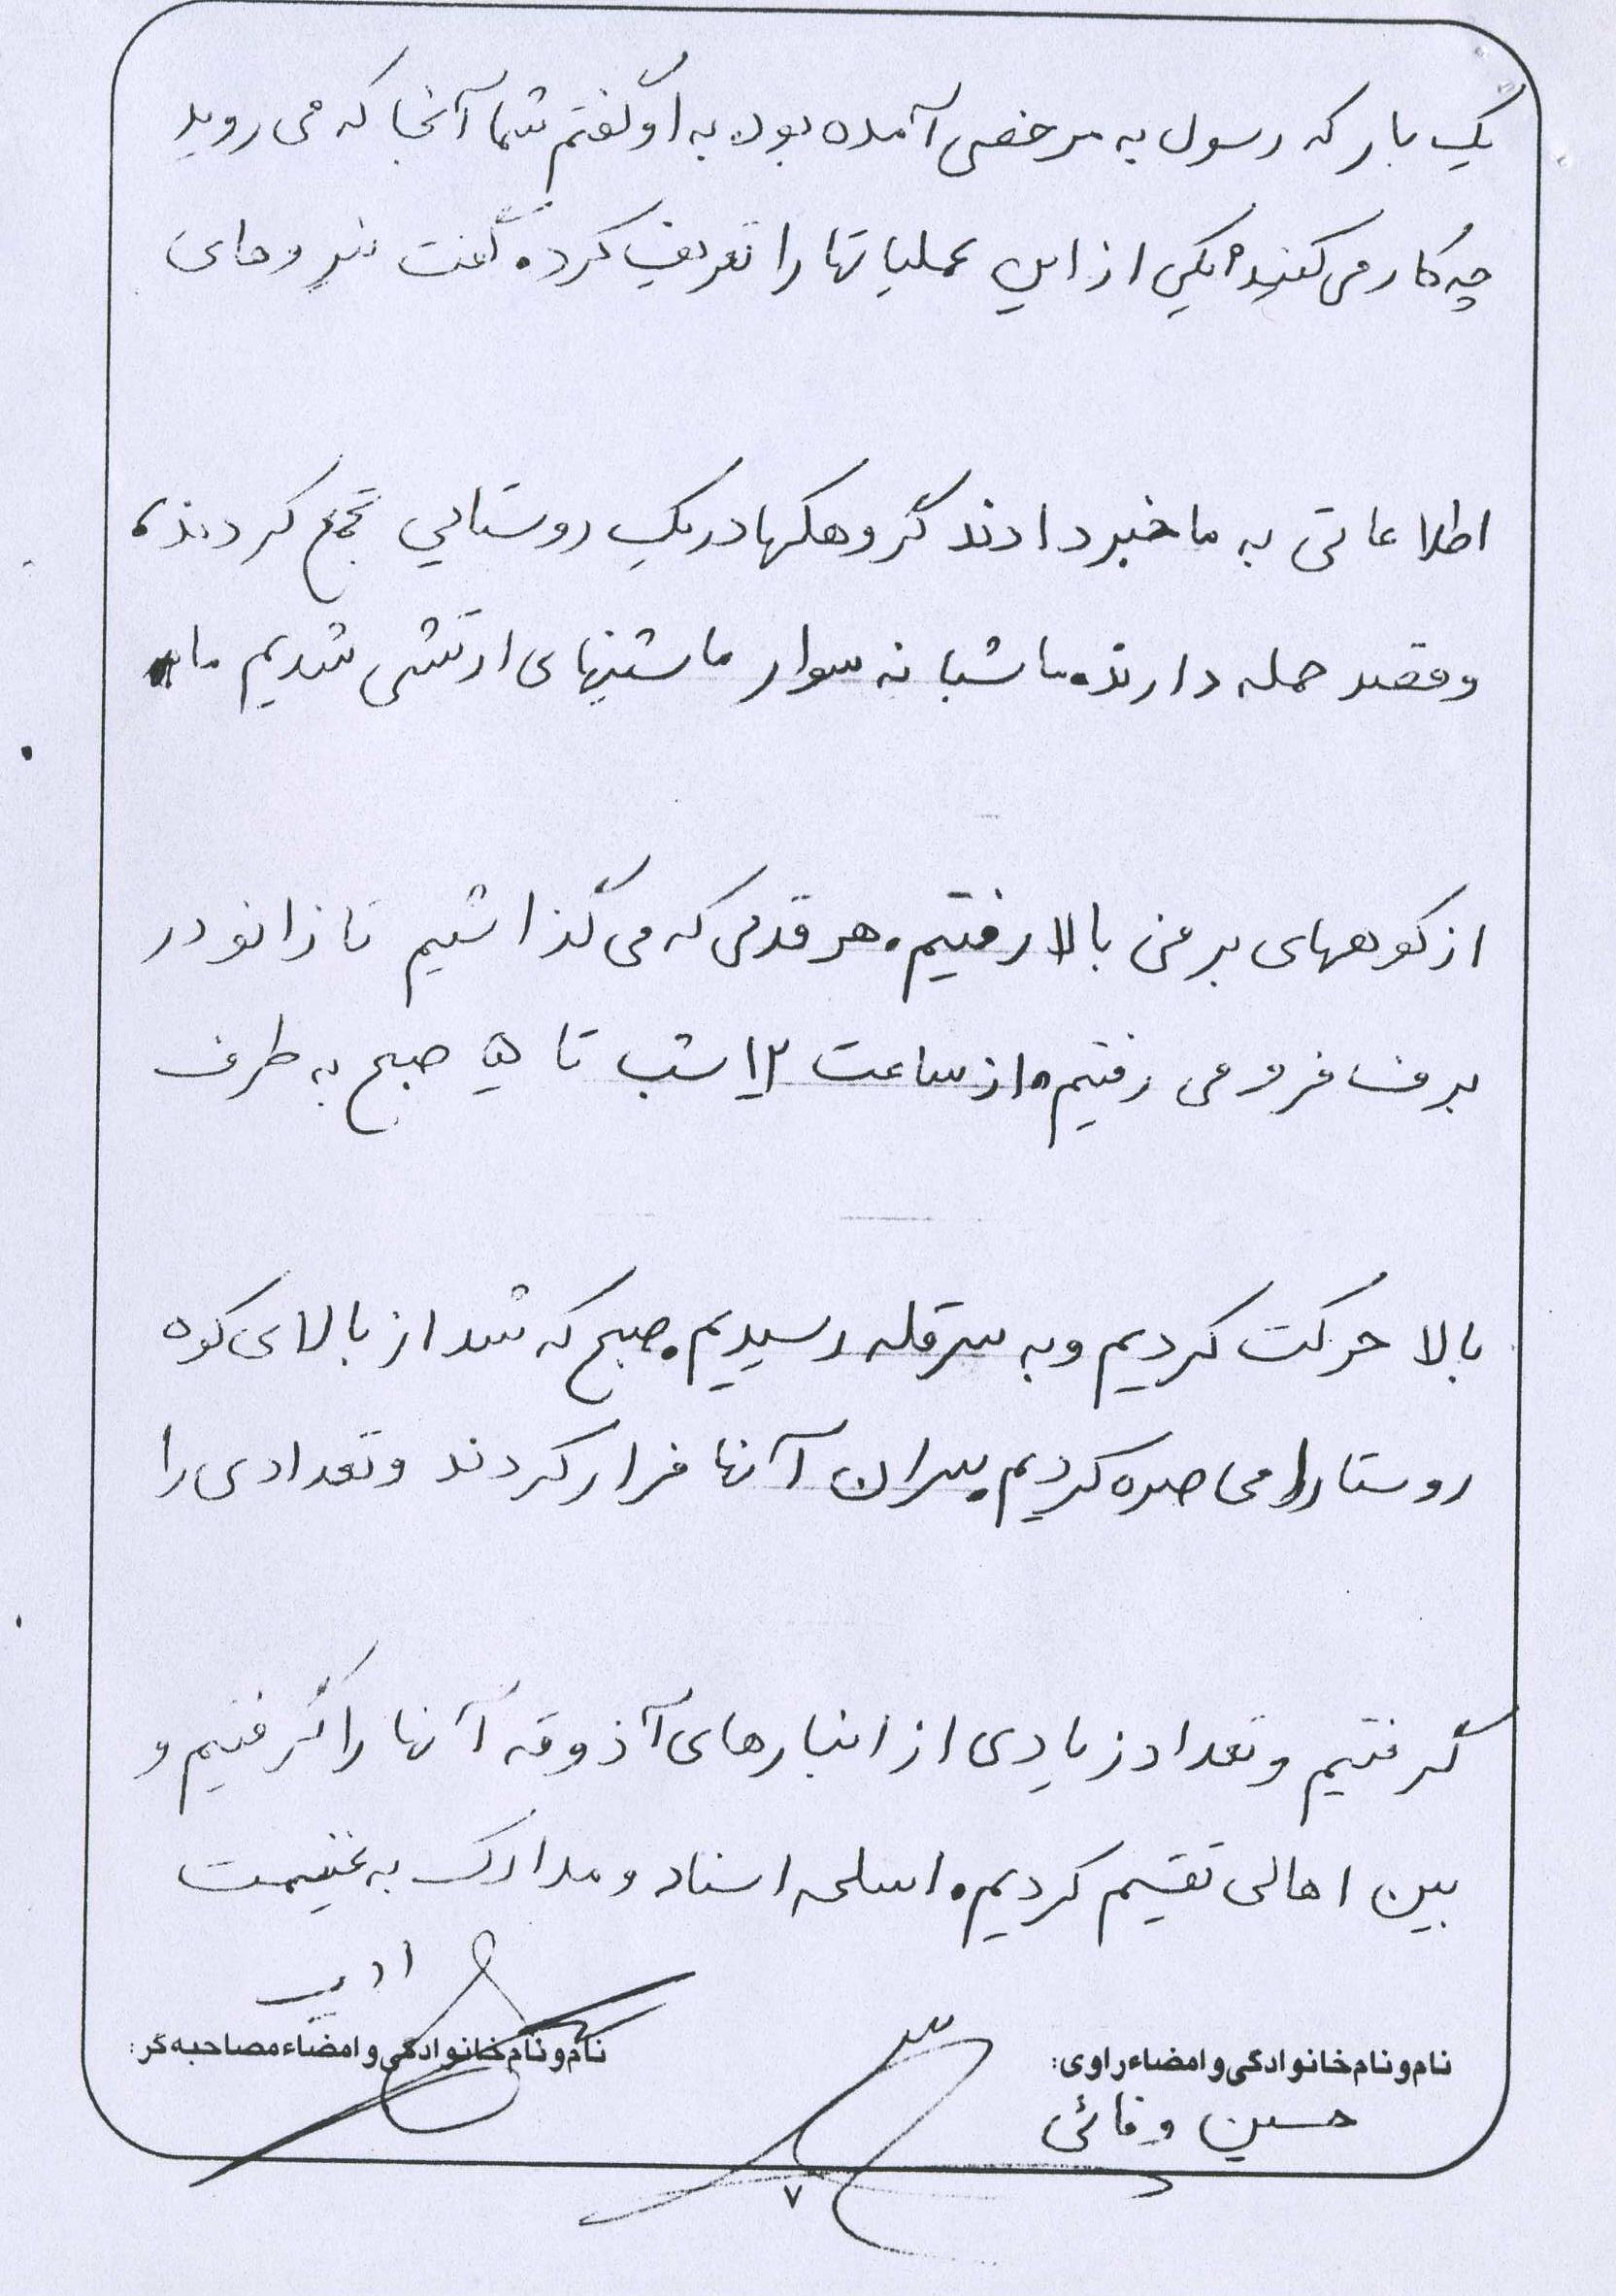 یک بار که رسول به مرخصی آمده بود به او گفتم شما آنجا که می روید
چه کار می کنید؟ یکی از این عملیاتها را تعریف کرد. گفت نیروهای
اطلاعاتی به ما خبر دادند گروهکها در یک روستایی تجمع کردند،
و قصد حمله دارند. ما شبانه سوار ماشینهای ارتشی شدیم ما
از کوههای برفی بالا رفتیم. هر قدمی که می گذاشتیم تا زانو در
برف فرو می رفتیم. از ساعت ۱۲ شب تا ۵ صبح به طرف
بالا حرکت کردیم و به سر قله رسیدیم. صبح که شد از بالای کوه
روستا را محاصره کردیم. سران آنها فرار کردند و تعدادی را
گرفتیم و تعداد زیادی از انبارهای آذوقه آنها را گرفتیم و
بین اهالی تقسیم کردیم. اسلحه اسناد و مدارک به غنیمت
نام و نام خانوادگی و امضاء راوی:
حسین وفائی
نام و نام خانوادگی و امضاء مصاحبه گر:
۷